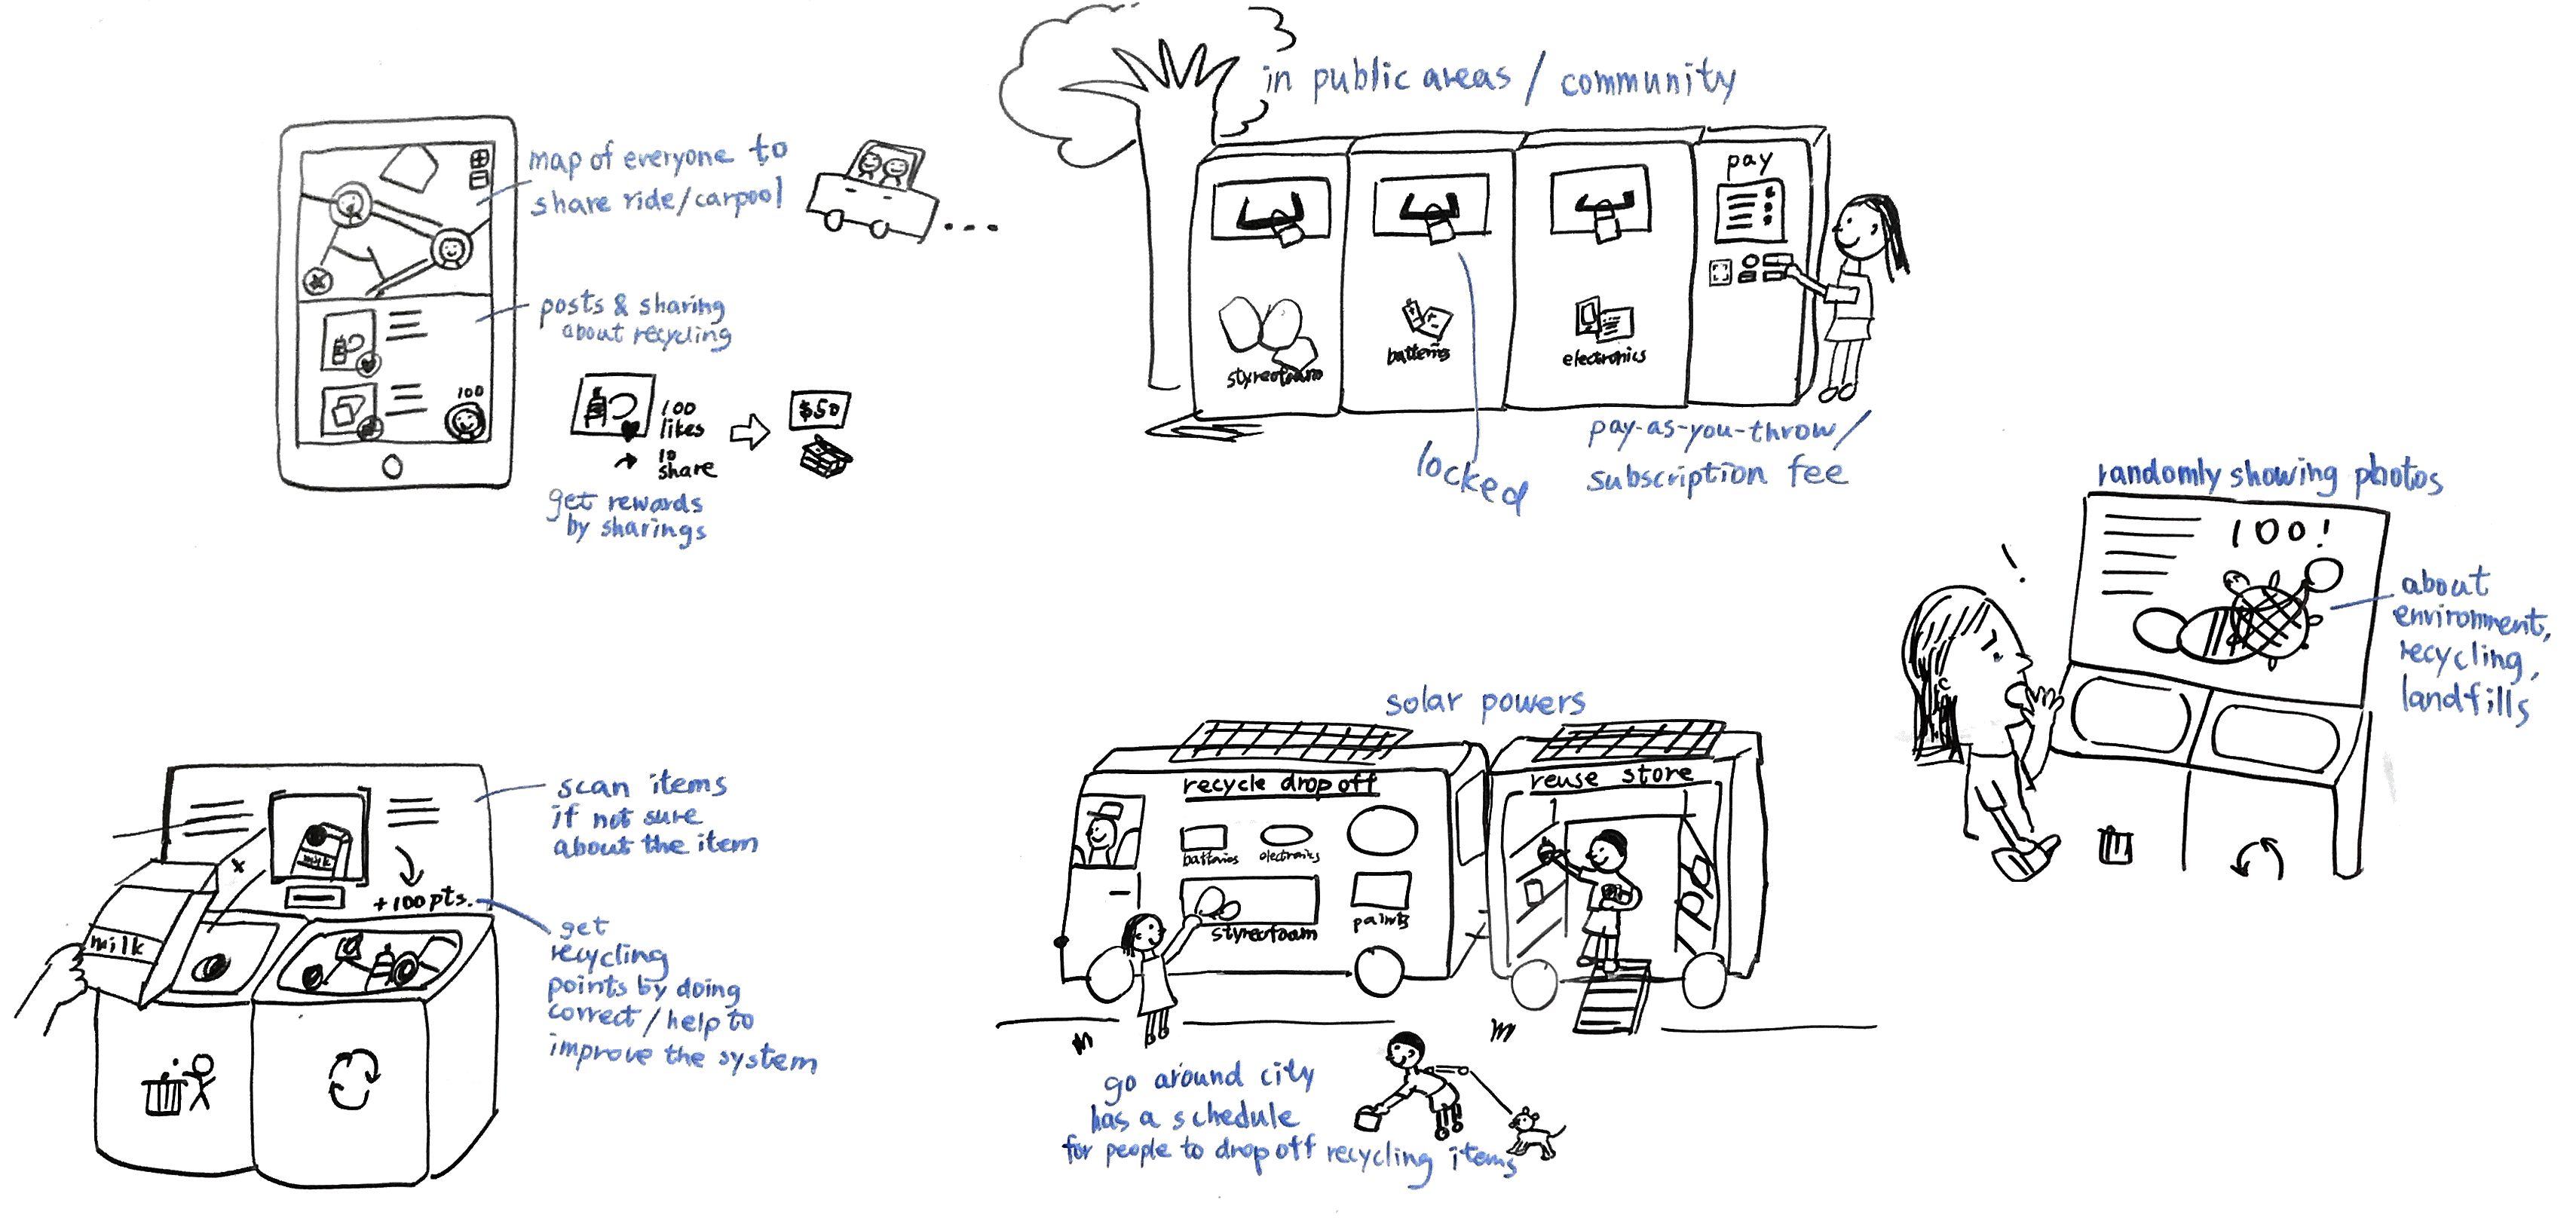 map of everyone to
share ride/carpool
posts & sharing
about recycling
100
100
likes
10
share
$50
get rewards
by sharings
in public areas / community
pay
styreofoam
batteries
electronics
locked
pay-as-you-throw/
subscription fee
randomly showing photos
100!
about
environment,
recycling,
landfills
scan items
if not sure
about the item
milk
milk
+100pts.
get
recycling
points by doing
correct/help to
improve the system
solar powers
recycle drop off
batteries
electronics
styreofoam
paints
reuse store
go around city
has a schedule
for people to drop off recycling items